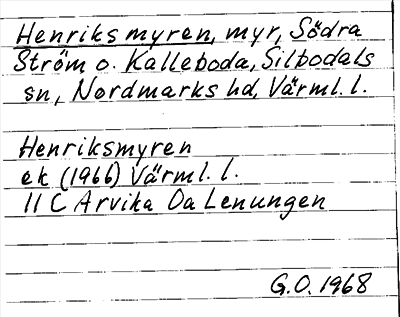 Henriksmyren, myr, Södra
Ström o. Kalleboda, Silbodals
sn, Nordmarks hd, Värml. l.
Henriksmyren
ek (1966) Värml. l.
11 C Arvika Oa Lenungen
G.O. 1968